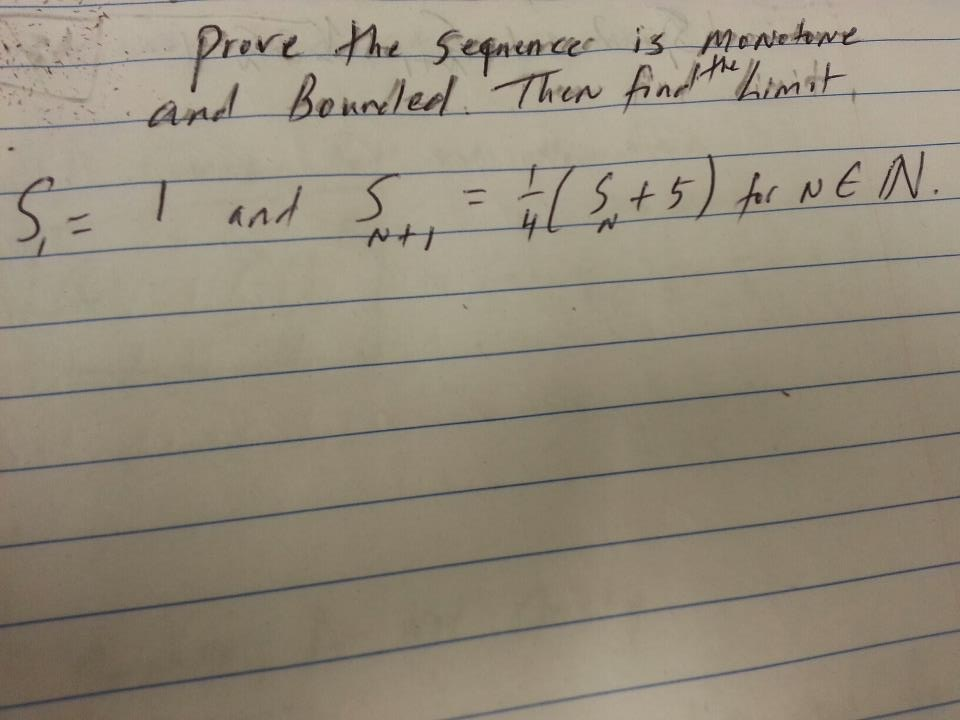 Prove the sequence is monotone
and Bounded. Then find the Limit.
S₁ = 1 and S_{N+1} = 1/4 (S_N + 5) for N ∈ ℕ.